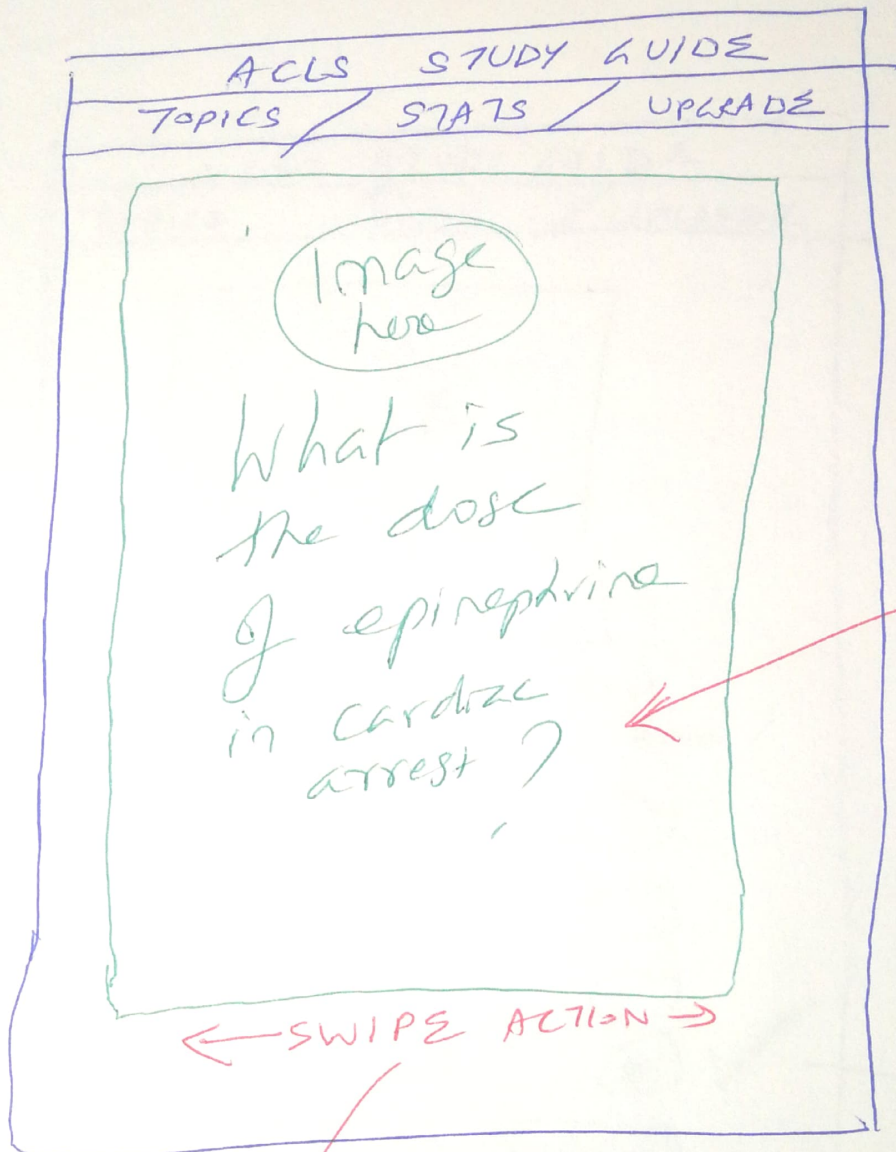 ACLS STUDY GUIDE
TOPICS / STATS / UPGRADE
Image
here
What is
the dose
of epinephrine
in cardiac
arrest?
← SWIPE ACTION →